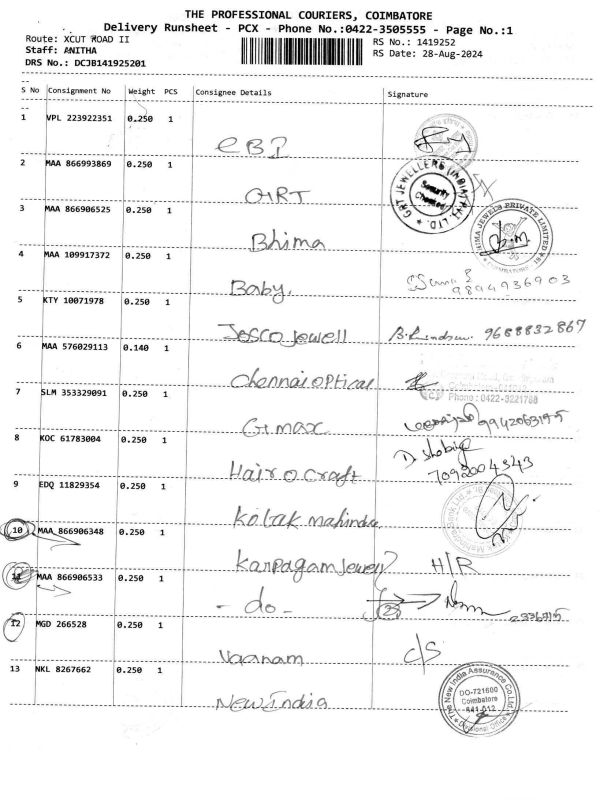 THE PROFESSIONAL COURIERS, COIMBATORE
Delivery Runsheet - PCX - Phone No.:0422-3505555 - Page No.:1
Route: XCUT ROAD II
RS No.: 1419252
Staff: ANITHA
RS Date: 28-Aug-2024
DRS No.: DCJB141925201
S No Consignment No Weight PCS Consignee Details Signature
1 VPL 223922351 0.250 1
CBI
2 MAA 866993869 0.250 1
GRT
GRT JEWELLERS (INDIA) PVT. LTD.
Security Checked
3 MAA 866906525 0.250 1
Bhima
BHIMA JEWELS PRIVATE LIMITED
COIMBATORE
4 MAA 109917372 0.250 1
Baby.
9894936903
5 KTY 10071978 0.250 1
Josco Jewell
9688832867
6 MAA 576029113 0.140 1
Chennai optical
Phone : 0422-3221788
7 SLM 353329091 0.250 1
Gimax
8 KOC 61783004 0.250 1
D. Shobiga
Hair o craft
9 EDQ 11829354 0.250 1
Kotak mahindra
10 MAA 866906348 0.250 1
Karpagam Jewell
H/R
11 MAA 866906533 0.250 1
- do -
12 MGD 266528 0.250 1
Vaanam
C/S
13 NKL 8267662 0.250 1
New India
The New India Assurance Co. Ltd.
DO-721600
Coimbatore
641 012
Divisional Office